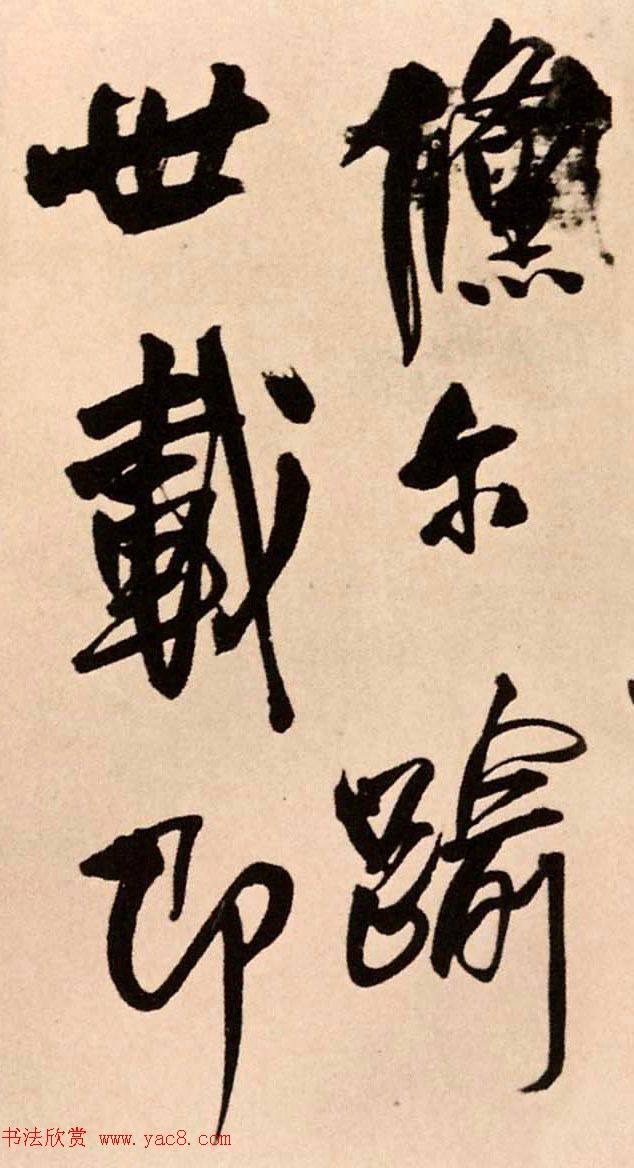 儵尔踰
世載即
书法欣赏 www.yac8.com